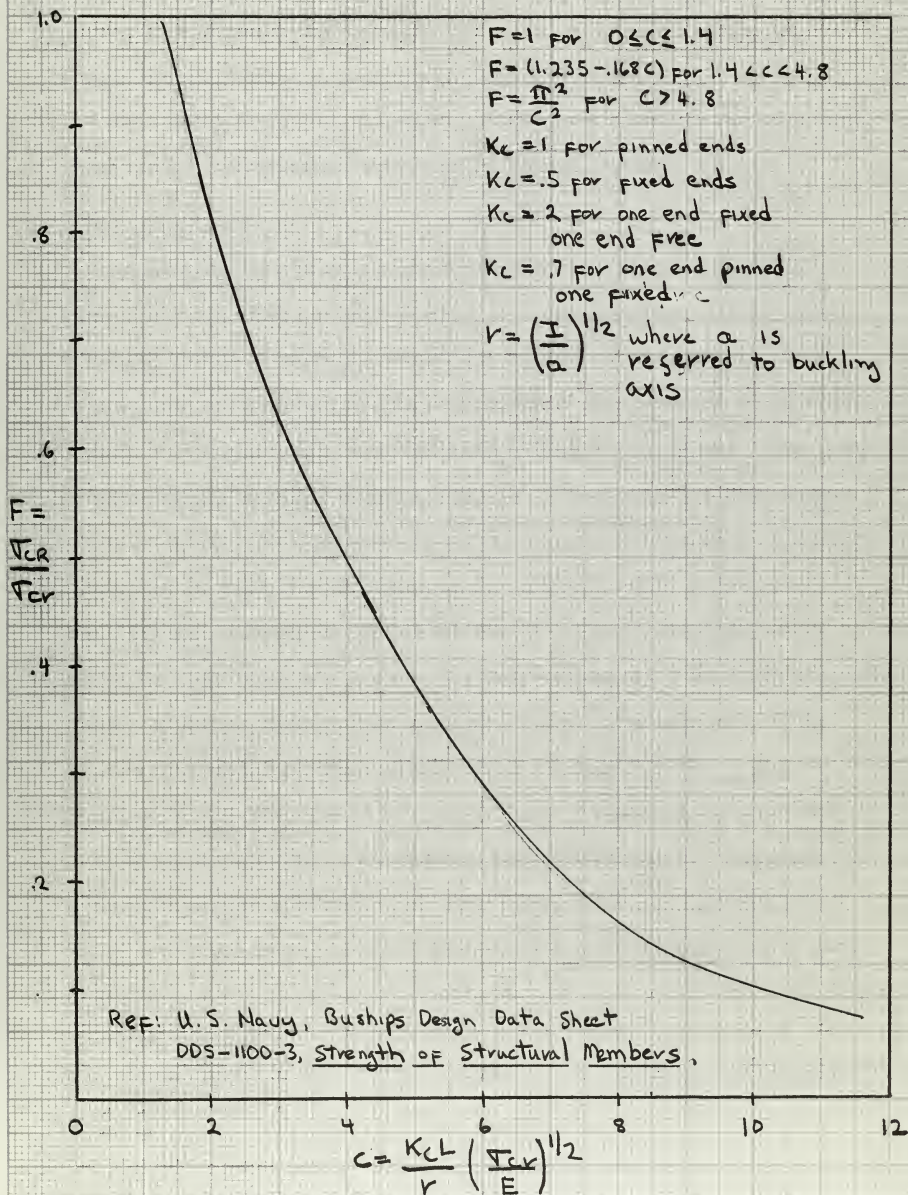 1.0
F=1 for 0≤C≤1.4
F=(1.235-.168C) for 1.4<C<4.8
F=π²/C² for C>4.8
Kc=1 for pinned ends
Kc=.5 for fixed ends
Kc=2 for one end fixed
one end free
Kc=.7 for one end pinned
one fixed
r=(I/a)^1/2 where a is
referred to buckling
axis
.8
.6
F=
σCR
σcr
.4
.2
Ref: U.S. Navy, Buships Design Data Sheet
DDS-1100-3, Strength of Structural Members.
0
0 2 4 6 8 10 12
C=KcL/r (σcr/E)^1/2